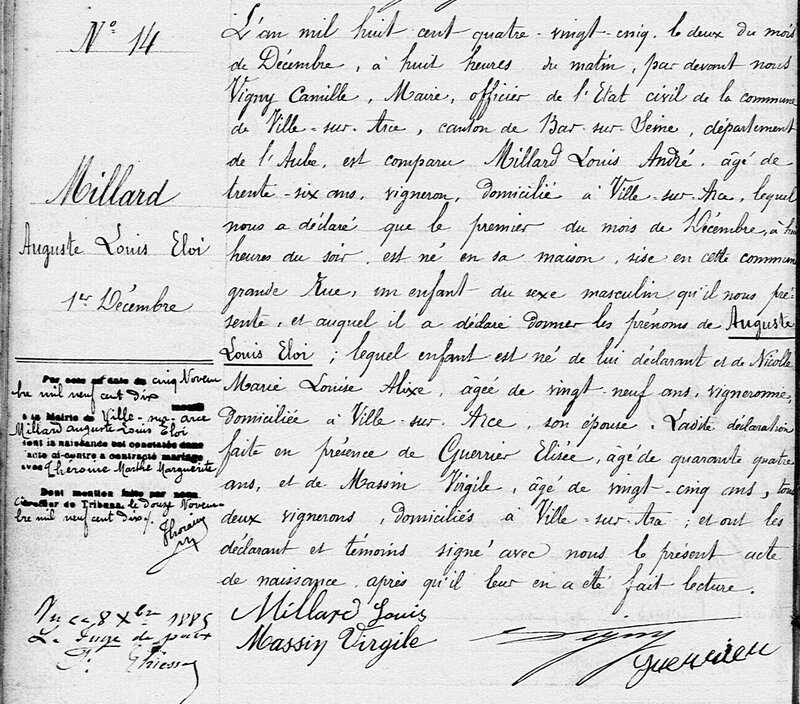 N° 14
Millard
Auguste Louis Eloi
1er Décembre
Par acte en date du cinq Novem
bre mil neuf cent dix
à la Mairie de Ville-sur-arce
Millard auguste Louis Eloi
dont la naissance est constatée dans
l'acte ci-contre a contracté mariage
avec Marthe Marguerite
Dont mention faite par nous
Greffier du Tribunal, le douze Novem
bre mil neuf cent dix
Vu ce 8 Xbre 1885
Le Juge de paix
L'an mil huit cent quatre-vingt-cinq, le deux du mois
de Décembre, à huit heures du matin, par devant nous
Vigny Camille, Maire, officier de l'Etat civil de la commune
de Ville-sur-Arce, canton de Bar-sur-Seine, département
de l'Aube, est comparu Millard Louis André, âgé de
trente-six ans, vigneron, domicilié à Ville-sur-Arce, lequel
nous a déclaré que le premier du mois de Décembre, à
heures du soir, est né en sa maison, sise en cette commun
grande Rue, un enfant du sexe masculin qu'il nous pré-
sente, et auquel il a déclaré donner les prénoms de Auguste
Louis Eloi ; lequel enfant est né de lui déclarant et de Nicolle
Marie Louise Alixe, âgée de vingt-neuf ans, vigneronne,
domiciliée à Ville-sur-Arce, son épouse. Ladite déclaration
faite en présence de Guerrier Elisée, âgé de quarante quatre
ans, et de Massin Virgile, âgé de vingt-cinq ans, tous
deux vignerons, domiciliés à Ville-sur-Arce ; et ont les
déclarant et témoins signé avec nous le présent acte
de naissance, après qu'il leur en a été fait lecture.
Millard Louis
Massin Virgile
Vigny
Guerrier